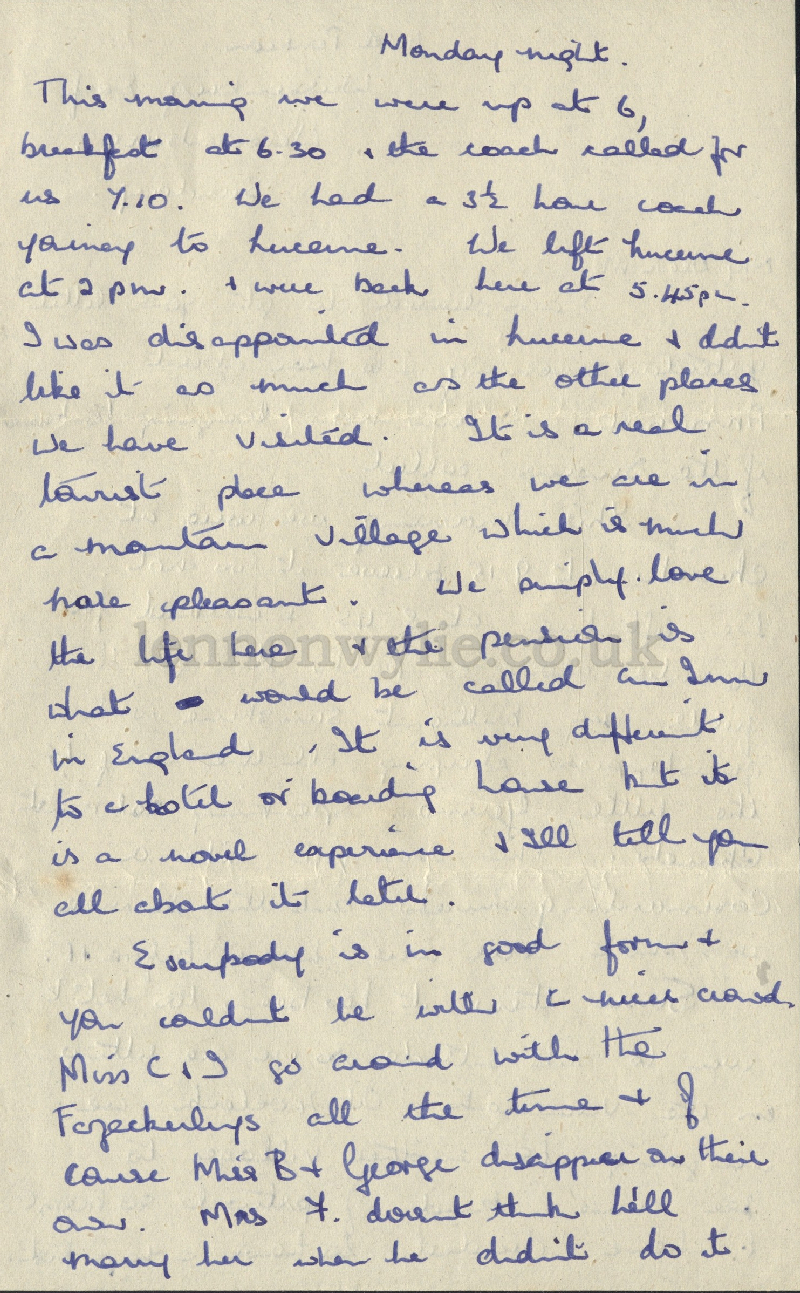 Monday night.
This morning we were up at 6,
breakfast at 6.30 & the coach called for
us 7.10. We had a 3½ hour coach
journey to Lucerne. We left Lucerne
at 2 pm. & were back here at 5.45pm.
I was disappointed in Lucerne & didn't
like it as much as the other places
we have visited. It is a real
tourist place whereas we are in
a mountain village which is much
more pleasant. We simply love
the life here & the pension is
lennonwylie.co.uk
what would be called an Inn
in England. It is very different
to a hotel or boarding house but it
is a novel experience & I'll tell you
all about it later.
Everybody is in good form &
you couldn't be with a nicer crowd.
Miss C & I go around with the
Fazackerleys all the time & of
course Miss B & George disappear on their
own. Mrs F. doesn't think he'll
marry her when he didn't do it